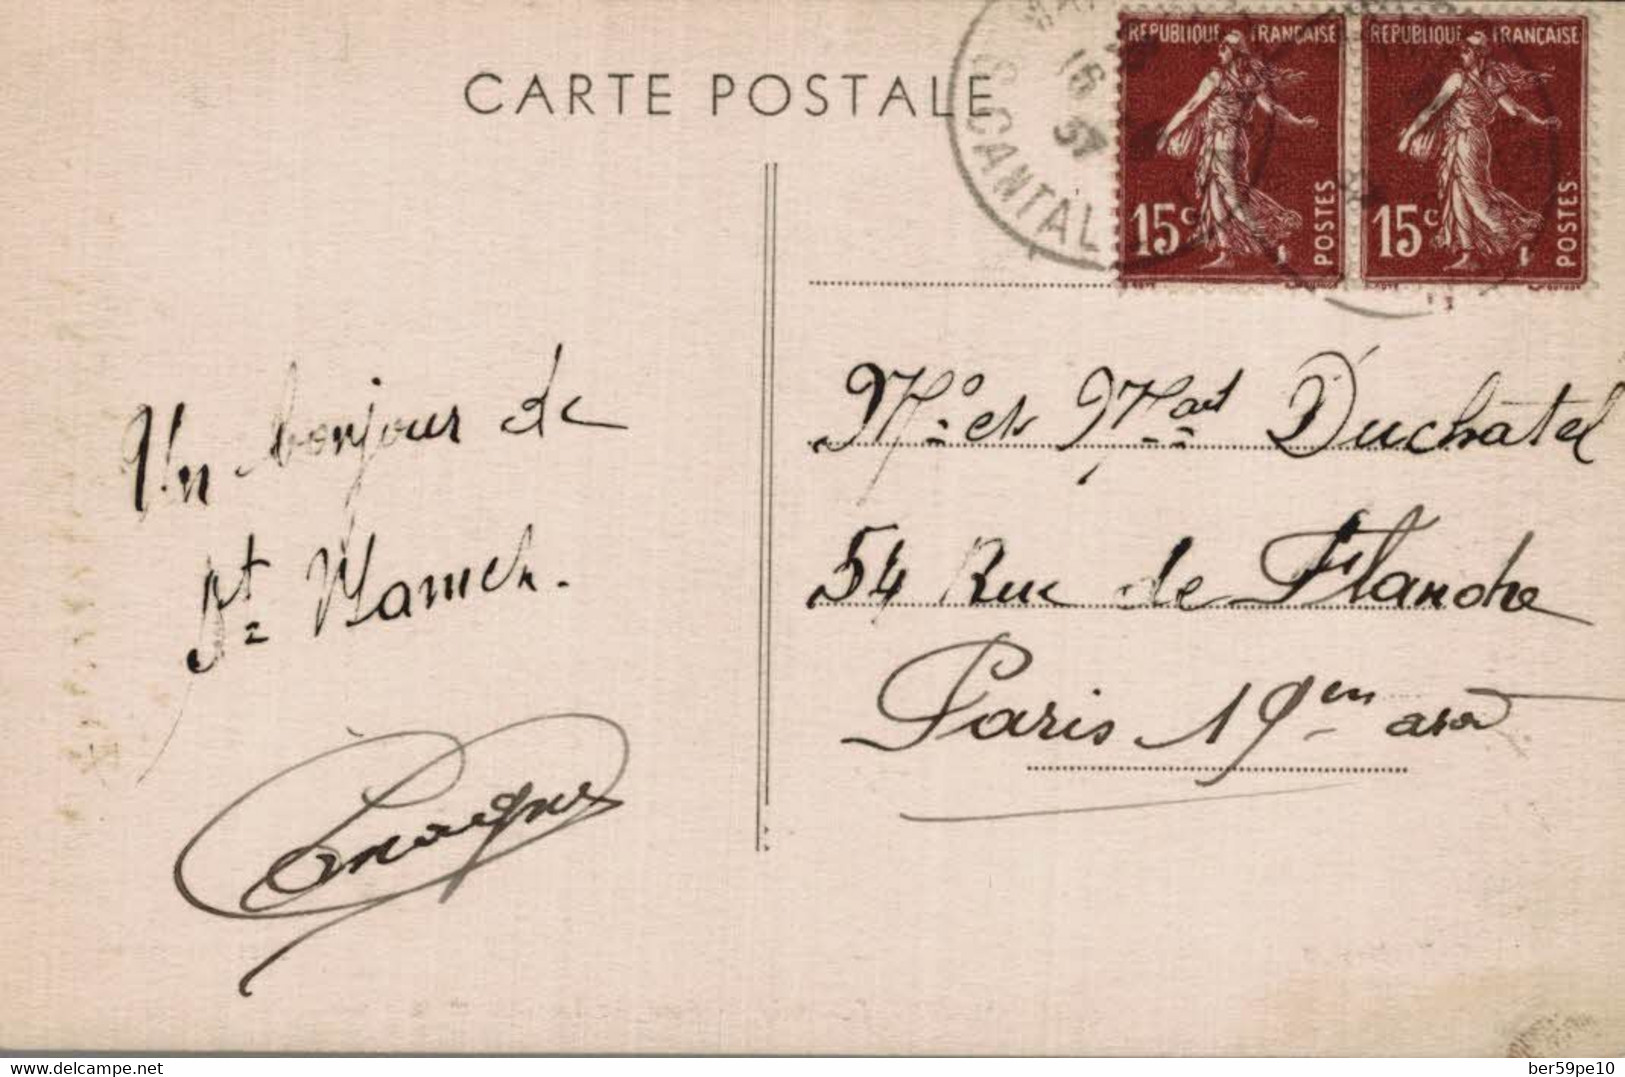 CARTE POSTALE
CANTAL
16
37
REPUBLIQUE FRANÇAISE
15c
POSTES
REPUBLIQUE FRANÇAISE
15c
POSTES
Un bonjour de
St
Mr et Mme Duchâtel
54 Rue de Flandre
Paris 19em arr
www.delcampe.net
ber59pe10